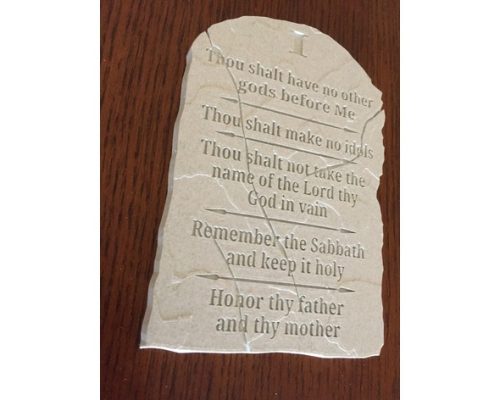 I
Thou shalt have no other
gods before Me
Thou shalt make no idols
Thou shalt not take the
name of the Lord thy
God in vain
Remember the Sabbath
and keep it holy
Honor thy father
and thy mother